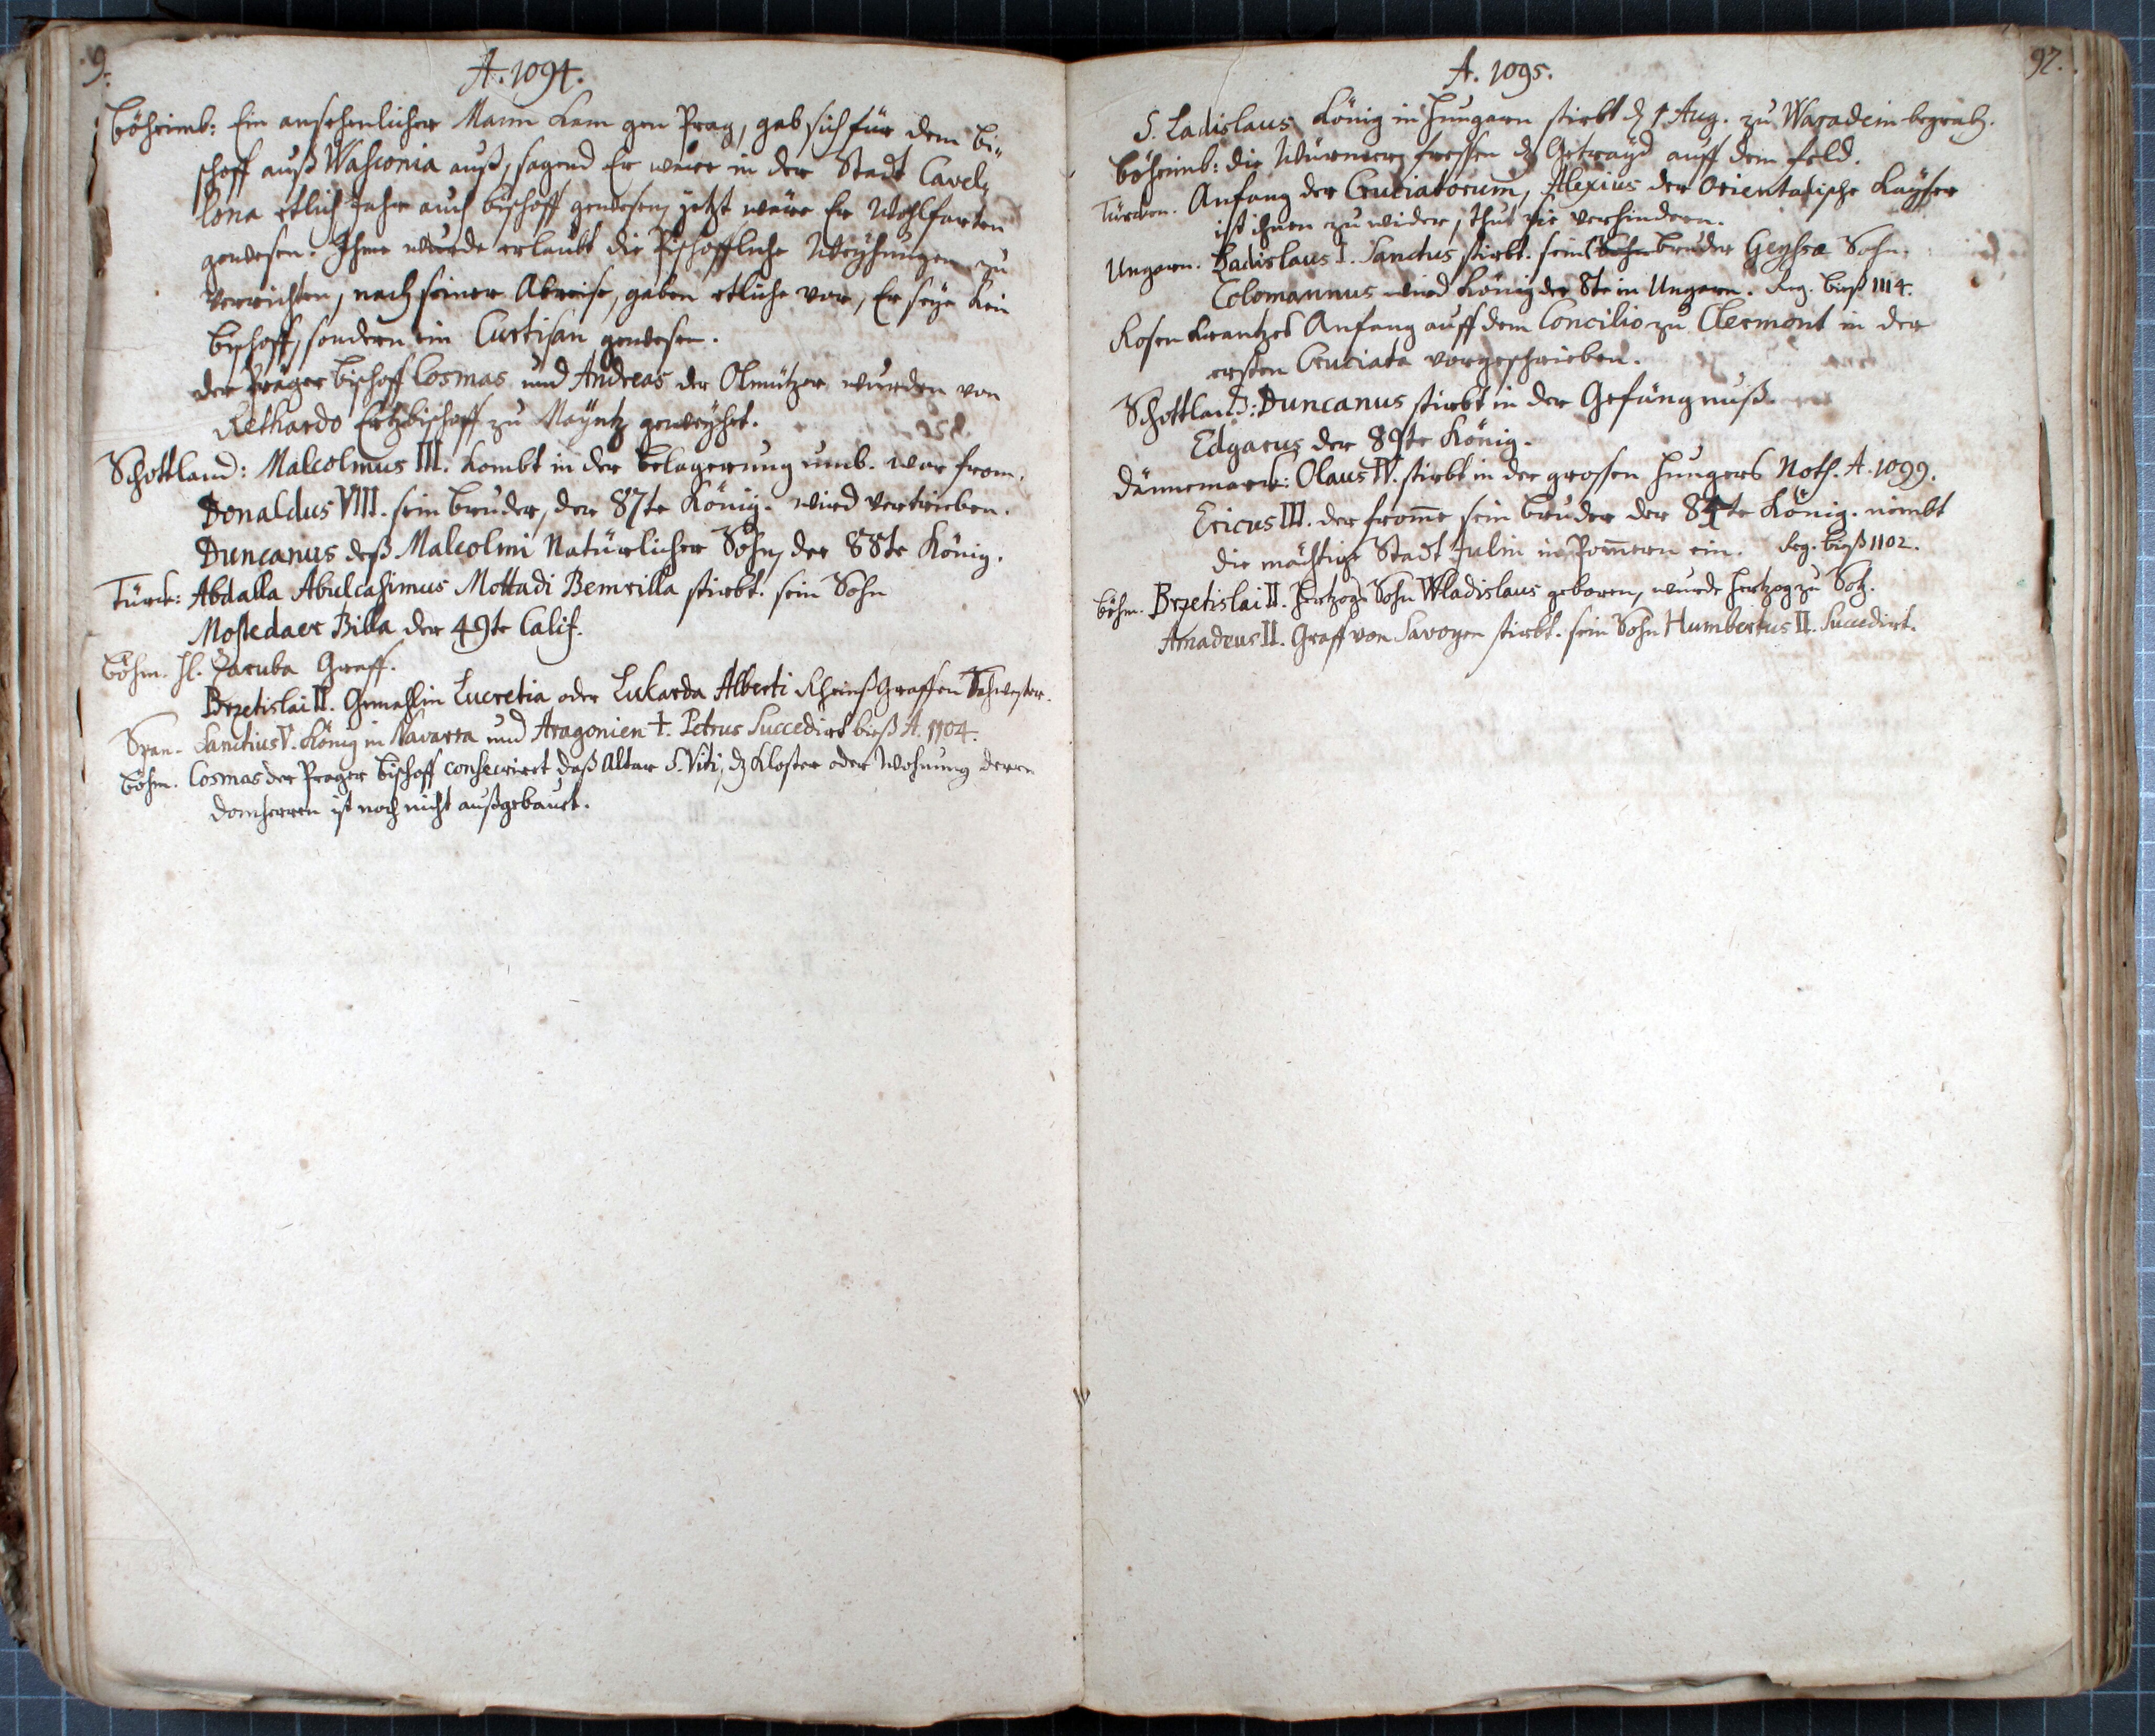 9.
A. 1094.
Böheimb: Ein ansehenlicher Mann kam gen Prag, gab sich für dem Bi-
schoff auß Wasconia auß, sagend Er wäre in der Stadt Cavel,
lona etlich Jahr auch Bischoff gewesen, jetzt wäre Er Wohlfarten
gewesen. Ihme wurde erlaubt die Bischoffliche Weyhungen zu
verrichten, nach seiner Abreise, gaben etliche vor, Er seye kein
Bischoff, sondern ein Curtisan gewesen.
der Präger Bischoff Cosmas und Andreas der Olmützer wurden von
Rethardo Ertzbischoff zu Mäyntz geweyhet.
Schottland: Malcolmus III. kombt in der Belagerung umb. war from.
Donaldus VIII. sein Bruder, der 87te König. wird vertrieben.
Duncanus deß Malcolmi Natürlicher Sohn, der 88te König.
Türck: Abdalla Abulcasimus Mottadi Bemrilla stirbt. sein Sohn
Mostedaer Billa der 49te Calif.
Böhm. Hl. Zaruba Graff.
Brzetislai II. Gemahlin Lucretia oder Lukarda Alberti Rheinß Graffen Schwester.
Span. Sanctius V. König in Navarra und Aragonien †. Petrus Succedirt bieß A. 1104.
Böhm. Cosmas der Prager Bischoff consecriret daß Altar S. Viti, dz Kloster oder Wohnung deren
Domherren ist noch nicht außgebauet.
97.
A. 1095.
S. Ladislaus König in Hungarn stirbt d. 1 Aug. zu Waradein begrab.
Böheimb: die Würmer fressen dz Getrayd auff dem feld.
Türcken. Anfang der Cruciatorum, Alexius der Orientalische Kayser
ist ihnen zu wider, thut sie verhindern.
Ungarn. Ladislaus I. Sanctus stirbt. sein Sohn bruder Geysæ Sohn,
Colomannus wird König der 8te in Ungarn. Reg. bieß 1114.
Rosen Krantzes Anfang auff dem Concilio zu Clermont in der
ersten Cruciata vorgeschrieben.
Schottland: Duncanus stirbt in der Gefängnuß.
Edgarus der 89te König.
Dännemarck: Olaus IV. stirbt in der grossen Hungers Noth. A. 1099.
Ericus III. der fromme sein Bruder der König. nimbt
die mächtige Stadt Julin in Pommern ein. Reg. bieß 1102.
Böhm. Brzetislai II. Hertzogs Sohn Wladislaus geboren, wurde Hertzog zu
Amadeus II. Graff von Savoyen stirbt. sein Sohn Humbertus II. Succedirt.